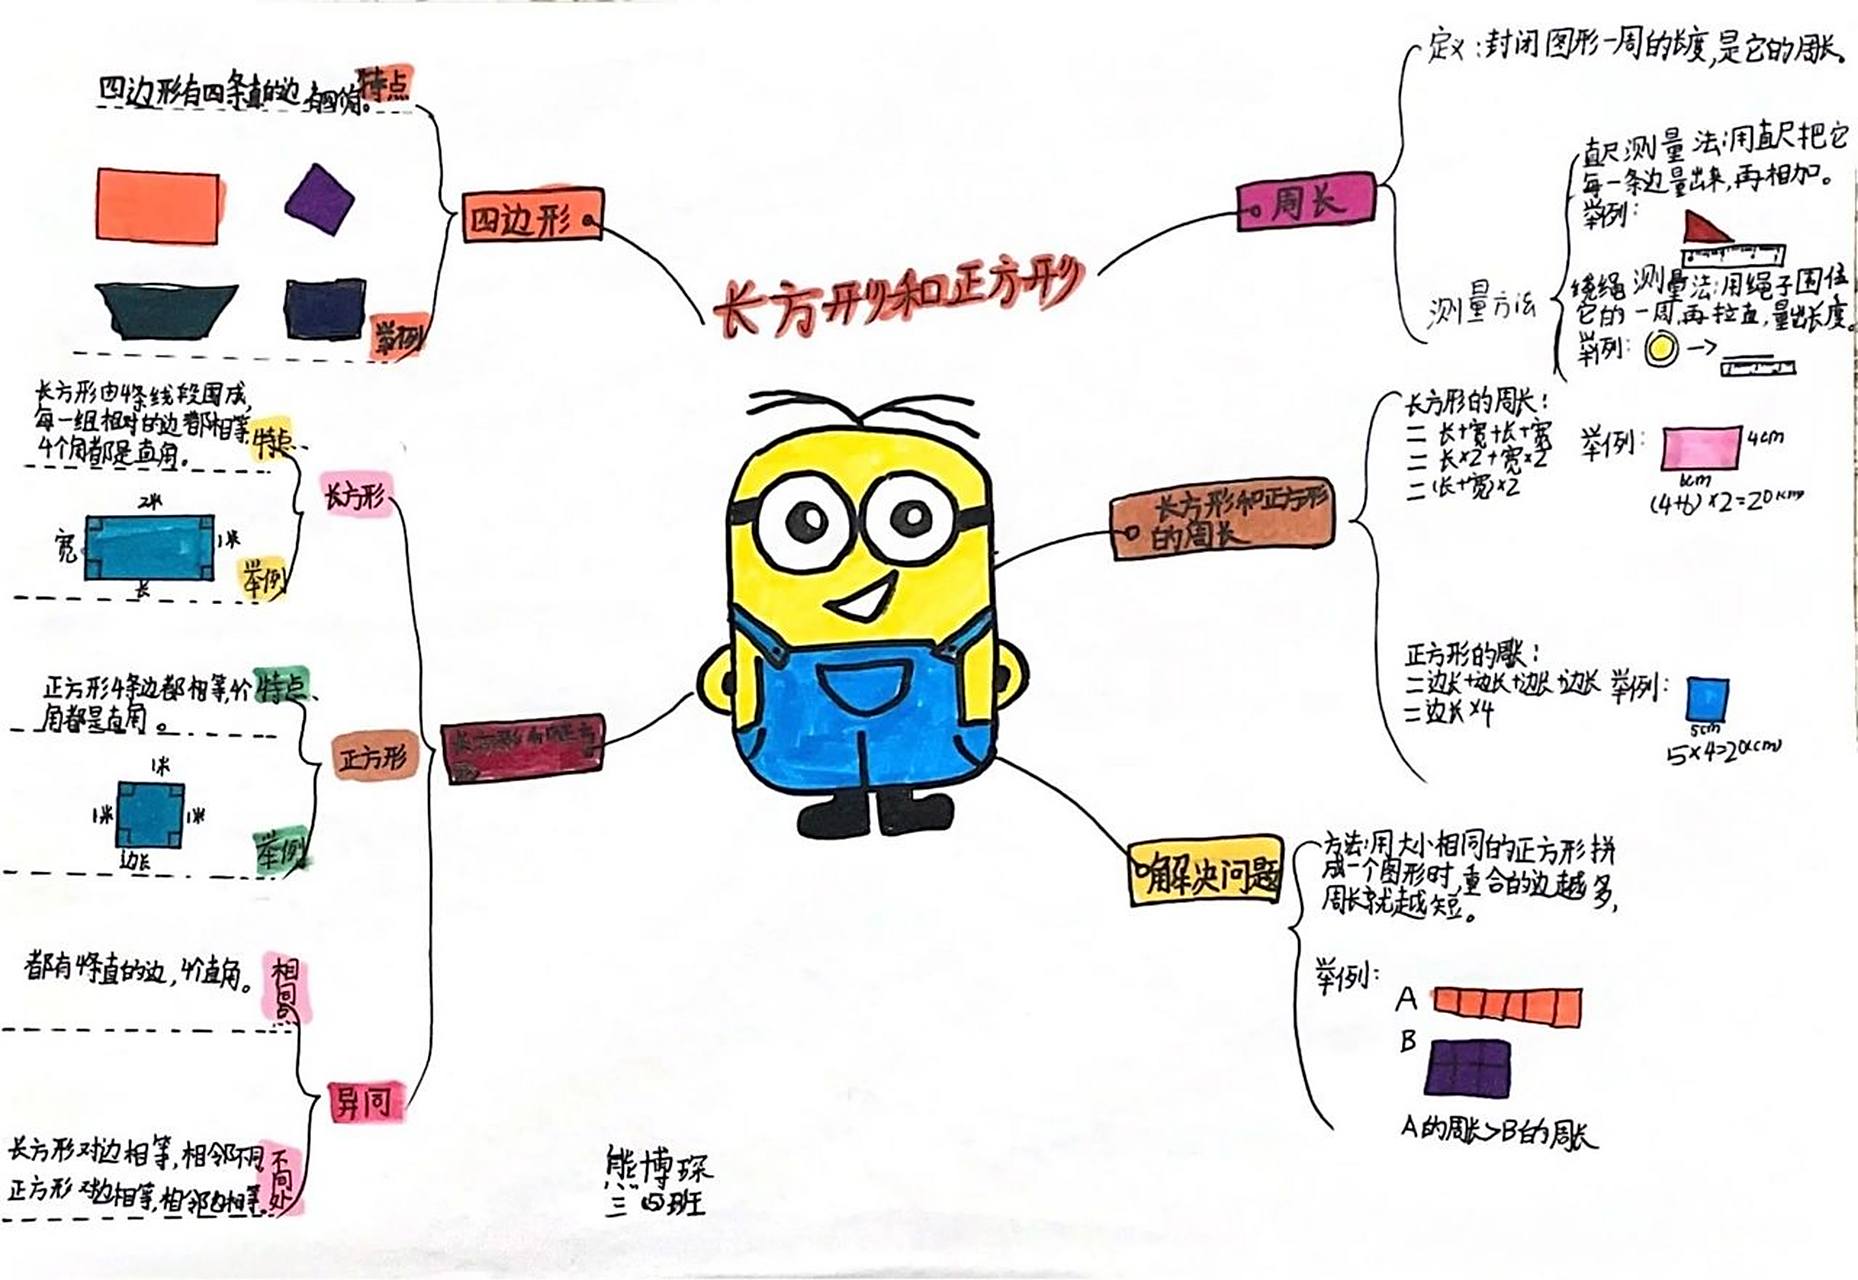 长方形和正方形
四边形
四边形有四条直的边,有四个角。
特点
举例
长方形和正方形
长方形
长方形由4条线段围成,
每一组相对的边都相等,
4个角都是直角。
特点
2米
宽
1米
长
举例
正方形
正方形4条边都相等,4个
角都是直角。
特点
1米
1米
1米
边长
举例
异同
都有4条直的边,4个直角。
相同点
长方形对边相等,相邻不同
正方形对边相等,相邻边相等。
不同处
周长
定义:封闭图形一周的长度,是它的周长。
测量方法
直尺测量法:用直尺把它
每一条边量出来,再相加。
举例:
绕绳测量法:用绳子围住
它的一周,再拉直,量出长度。
举例:
长方形和正方形
的周长
长方形的周长:
=长+宽+长+宽
=长×2+宽×2
=(长+宽)×2
举例:
4cm
6cm
(4+6)×2=20(cm)
正方形的周长:
=边长+边长+边长+边长
=边长×4
举例:
5cm
5×4=20(cm)
解决问题
方法:用大小相同的正方形拼
成一个图形时,重合的边越多,
周长就越短。
举例:
A
B
A的周长>B的周长
熊博琛
三(5)班